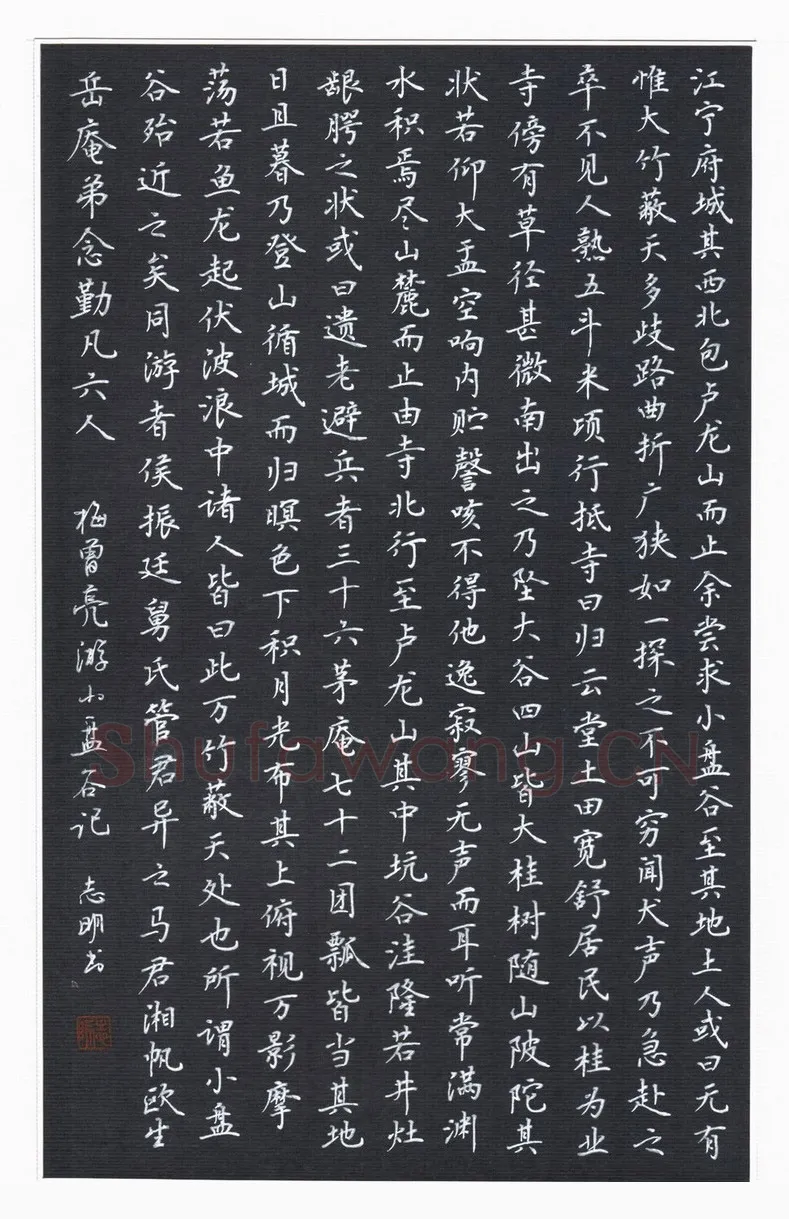 江宁府城其西北包卢龙山而止余尝求小盘谷至其地土人或曰无有
惟大竹蔽天多歧路曲折广狭如一探之不可穷闻犬声乃急赴之
卒不见人熟五斗米顷行抵寺曰归云堂土田宽舒居民以桂为业
寺傍有草径甚微南出之乃坠大谷四山皆大桂树随山陂陀其
状若仰大盂空响内贮謦咳不得他逸寂寥无声而耳听常满渊
水积焉尽山麓而止由寺北行至卢龙山其中坑谷洼隆若井灶
龈腭之状或曰遗老避兵者三十六茅庵七十二团瓢皆当其地
日且暮乃登山循城而归暝色下积月光布其上俯视万影摩
荡若鱼龙起伏波浪中诸人皆曰此万竹蔽天处也所谓小盘
谷殆近之矣同游者侯振廷舅氏管君异之马君湘帆欧生
岳庵弟念勤凡六人 梅曾亮游小盘谷记 志明书
Shufawang.CN